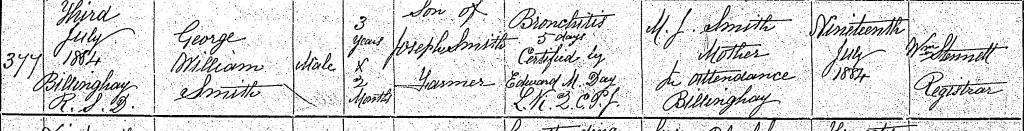 377
Third
July
1884
Billinghay
R. S. D.
George
William
Smith
Male
3
Years
&
2
Months
Son of
Joseph Smith
Farmer
Bronchitis
5 days
Certified by
Edward M. Day
L.K.Q.C.P.J.
M. J. Smith
Mother
In attendance
Billinghay
Nineteenth
July
1884
Wm Stennett
Registrar